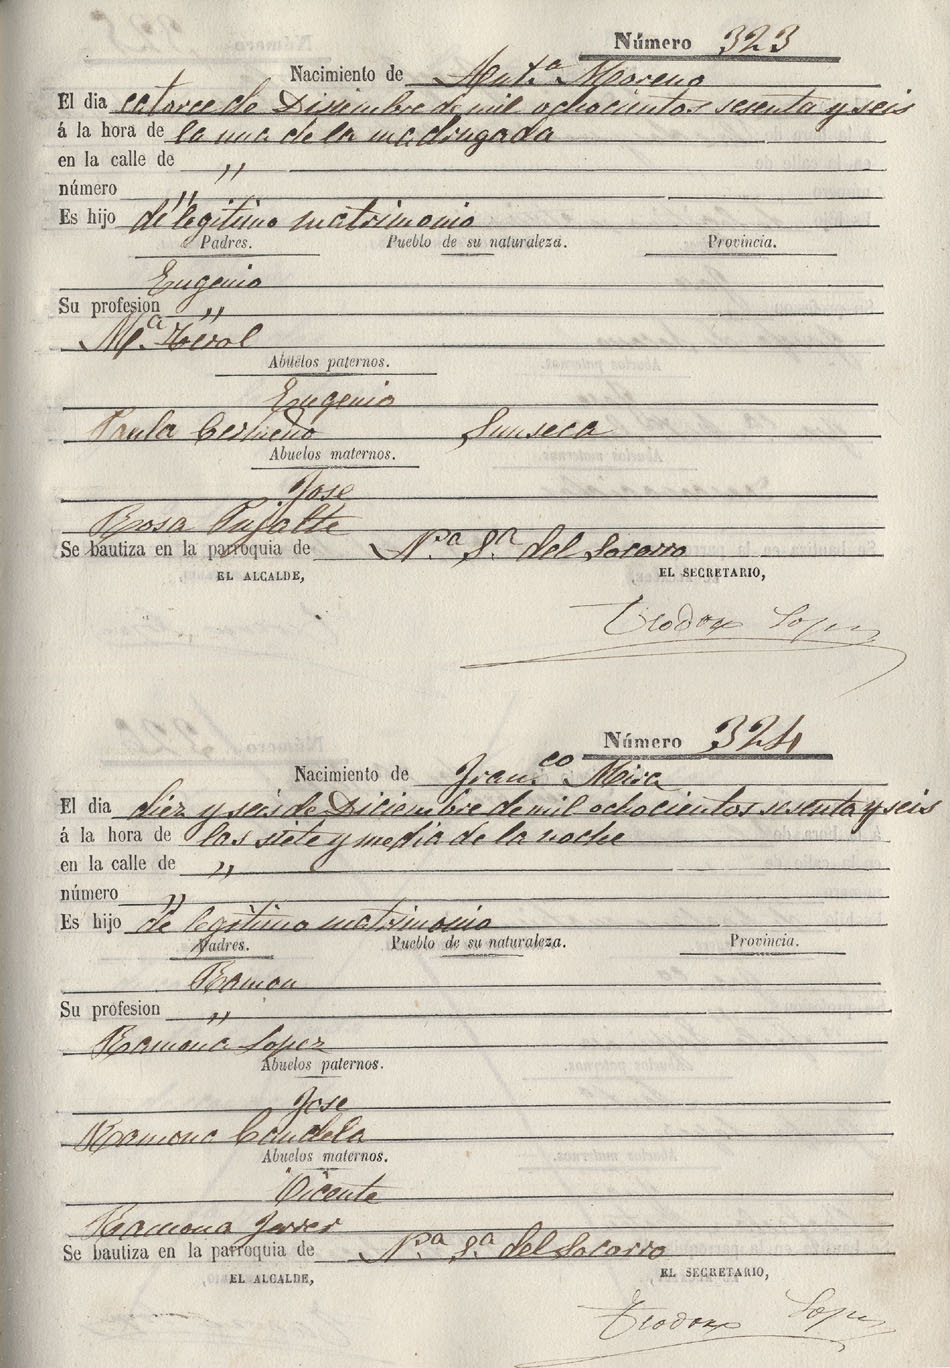 Número 323
Nacimiento de Ant.ª Moreno
El dia catorce de Diciembre de mil ochocientos sesenta y seis
á la hora de la una de la madrugada
en la calle de "
número "
Es hijo de legitimo matrimonio
Padres. Pueblo de su naturaleza. Provincia.
Eugenio
Su profesion "
M.ª Terol
Abuelos paternos.
Eugenio
Paula Sonseca
Abuelos maternos.
Jose
Rosa Pujalte
Se bautiza en la parroquia de N.ª S.ª del Socorro
EL ALCALDE, EL SECRETARIO,
Teodoro Lopez
Número 324
Nacimiento de Fran.co Mira
El dia diez y seis de Diciembre de mil ochocientos sesenta y seis
á la hora de las siete y media de la noche
en la calle de "
número "
Es hijo de legitimo matrimonio
Padres. Pueblo de su naturaleza. Provincia.
Ramon
Su profesion "
Ramona Lopez
Abuelos paternos.
Jose
Ramona Candela
Abuelos maternos.
Vicente
Ramona Ferrer
Se bautiza en la parroquia de N.ª S.ª del Socorro
EL ALCALDE, EL SECRETARIO,
Teodoro Lopez